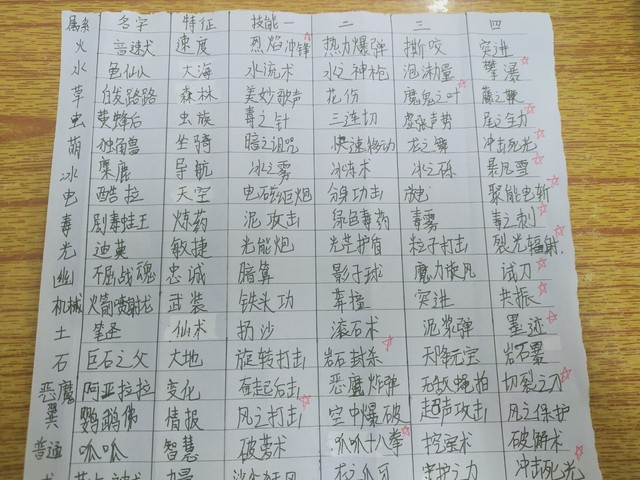 属系 名字 特征 技能一 二 三 四
火 音速犬 速度 烈焰冲锋 热力爆弹 撕咬 突进
水 龟仙人 大海 水流术 水之神枪 泡沫量 攀瀑
草 白发路路 森林 美妙歌声 花伤 魔鬼之叶 藤之鞭
虫 黄蜂后 虫族 毒之针 三连切 虚张声势 尾之全力
萌 独角兽 坐骑 暗之诅咒 快速移动 龙之舞 冲击死光
冰 麋鹿 导航 冰之雾 冰冻术 冰之砾 暴风雪
电 酷拉 天空 电磁炮 分身功击 放电 聚能电斩
毒 剧毒蛙王 炼药 泥攻击 绿色毒药 毒雾 毒之刺
光 迪英 敏捷 光能炮 光芒护盾 粒子打击 裂光辐射
幽 不屈战魂 忠诚 暗算 影子球 魔力旋风 试刀
机械 火箭喷射龙 武装 铁头功 莽撞 突进 共振
土 笔圣 仙术 扔沙 滚石术 泥浆弹 墨迹
石 巨石之父 大地 旋转打击 岩石封杀 天降元宝 岩石雾
恶魔 阿亚拉拉 变化 奋起后击 恶魔炸弹 苍蝇拍 切裂之刀
翼 鹦鹉佛 情报 风之打击 空中爆破 超声攻击 风之保护
普通 呱呱 智慧 破劳术 呱呱十八拳 挖宝术 破解术
力量 龙之爪牙 守护之力 冲击死光